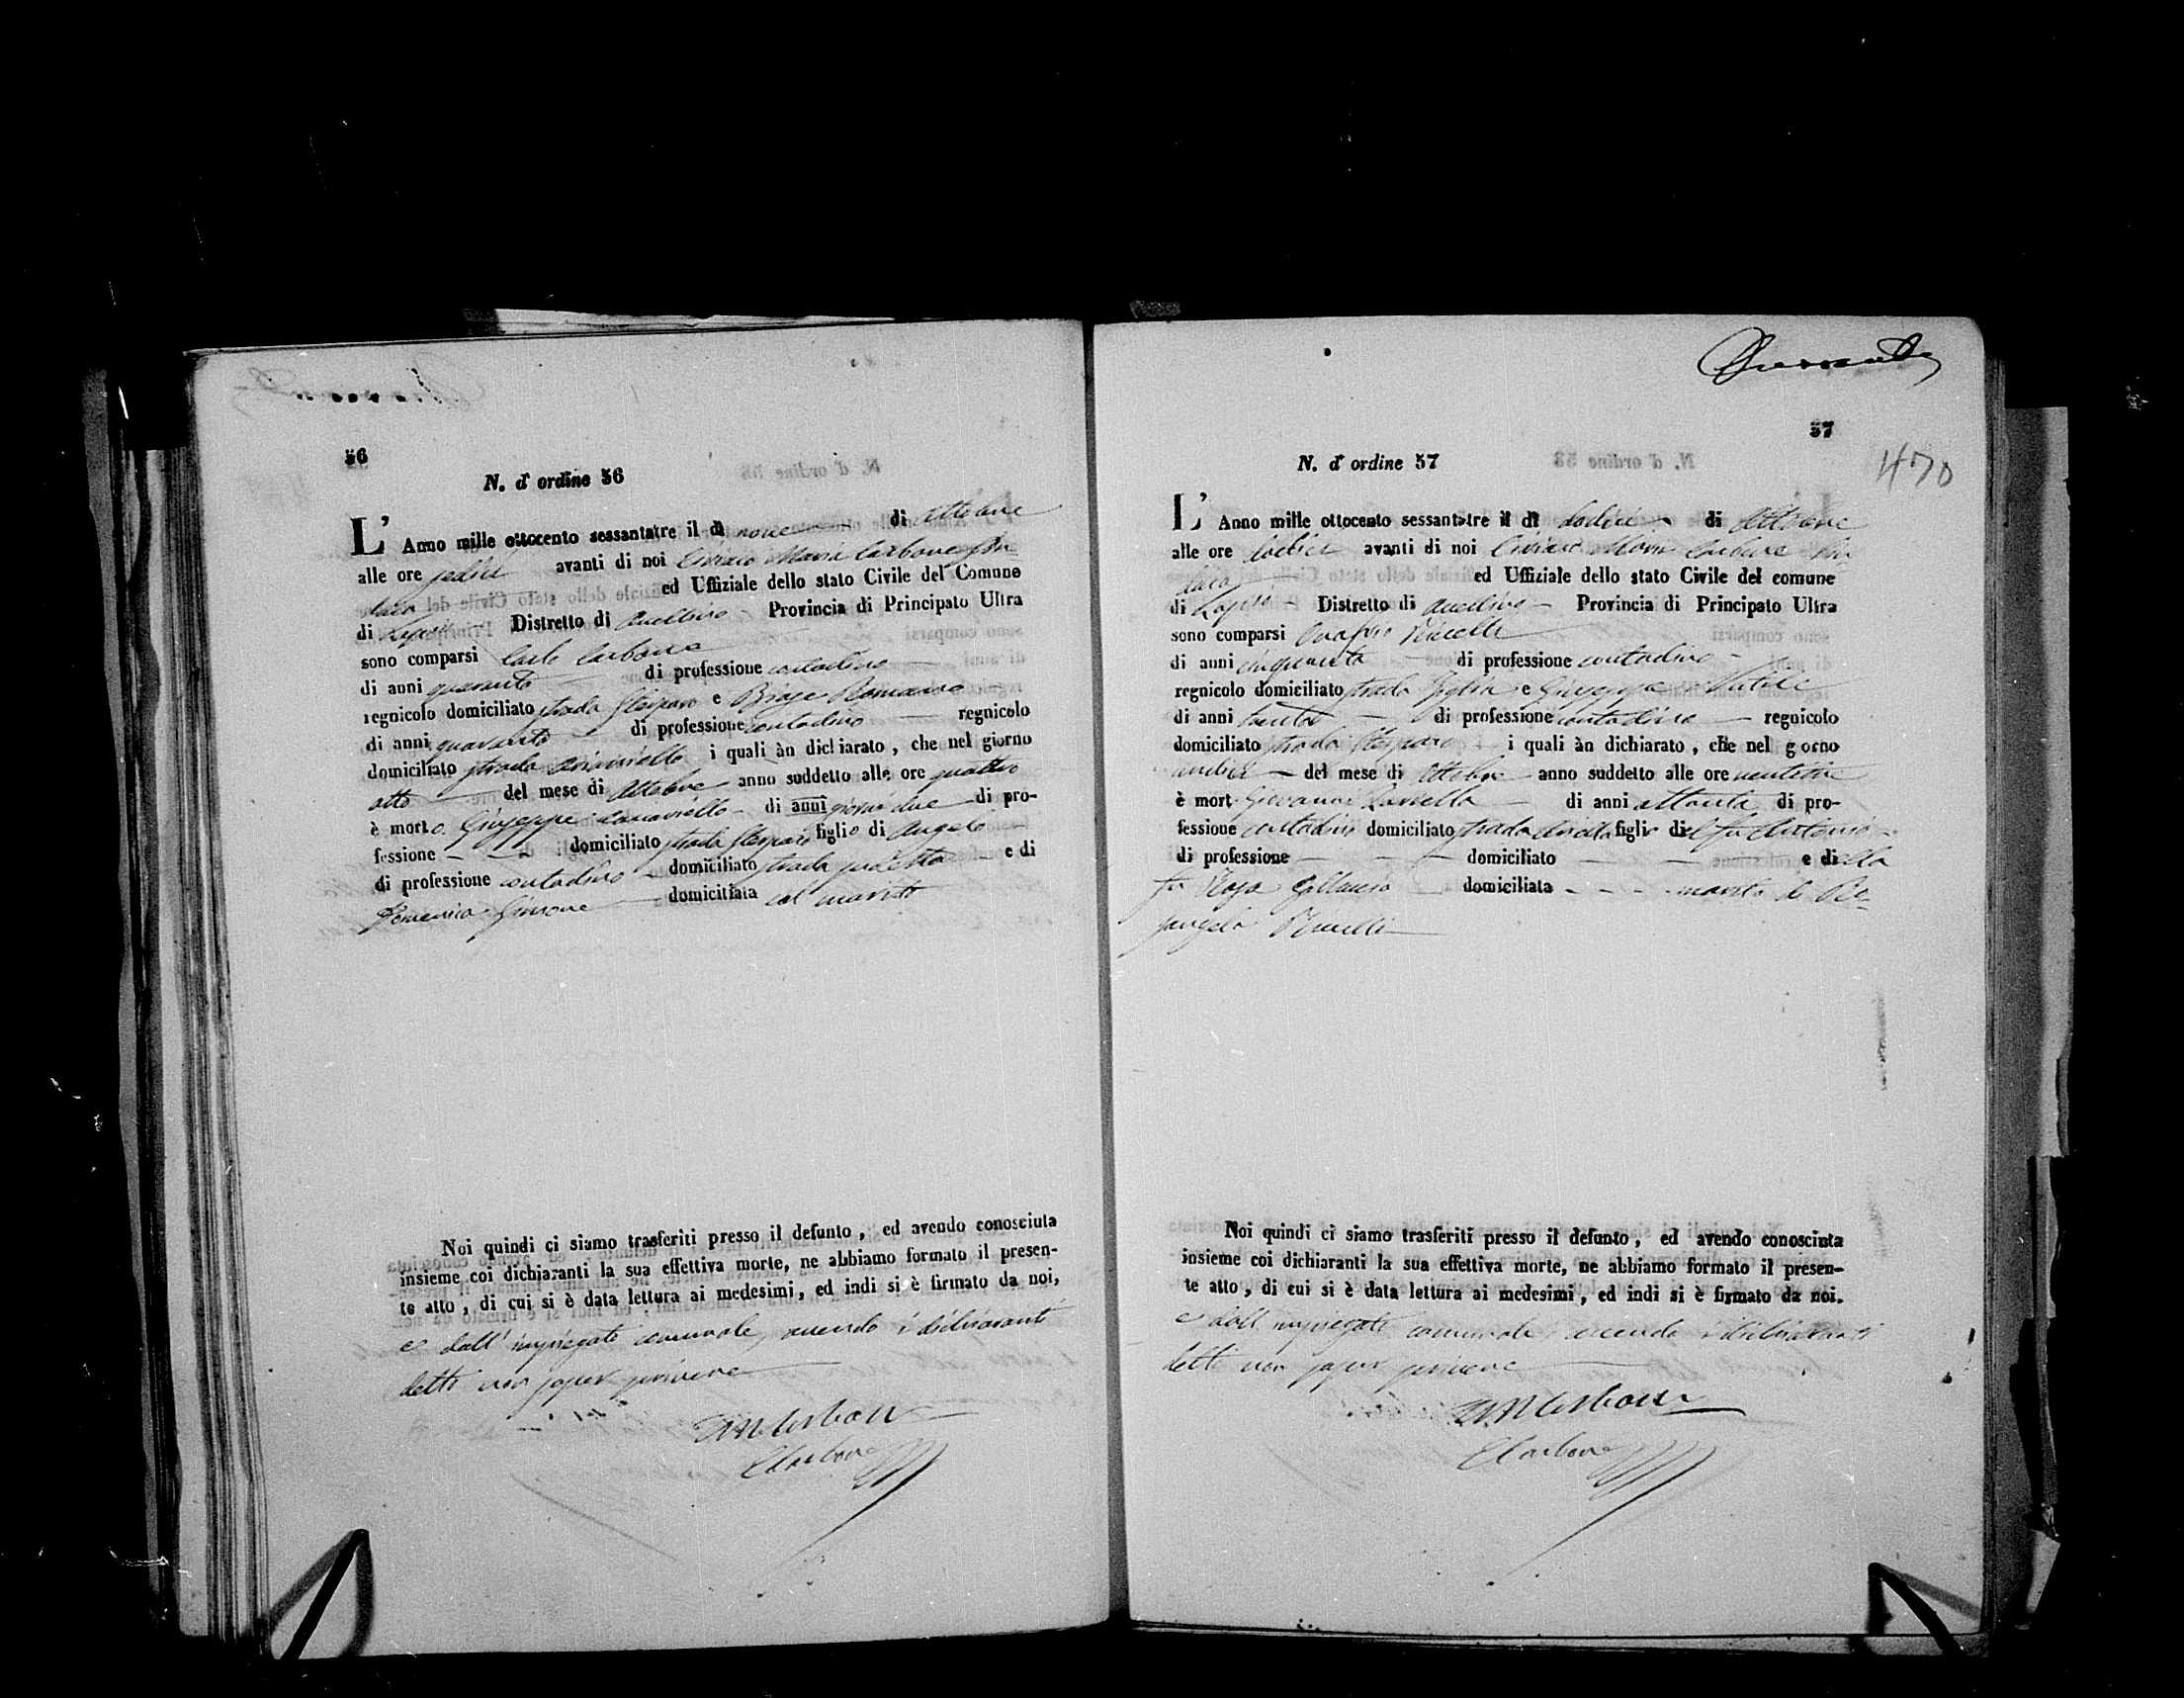 56
N. d' ordine 56
L' Anno mille ottocento sessantatre il dì nove di Ottobre
alle ore sedici avanti di noi Ciriaco Maria Carbone Sin-
daco ed Uffiziale dello stato Civile del Comune
di Distretto di Avellino Provincia di Principato Ultra
sono comparsi Carlo Carbone
di anni quaranta di professione contadino
regnicolo domiciliato strada e Biase Romano
di anni quaranta di professione contadino regnicolo
domiciliato strada i quali àn dichiarato, che nel giorno
otto del mese di Ottobre anno suddetto alle ore quattro
è morto Giuseppe di anni giorni due di pro-
fessione - - domiciliato strada figlio di Angelo
di professione contadino domiciliato strada suddetta e di
Domenica domiciliata col marito
Noi quindi ci siamo trasferiti presso il defunto, ed avendo conosciuta
insieme coi dichiaranti la sua effettiva morte, ne abbiamo formato il presen-
te atto, di cui si è data lettura ai medesimi, ed indi si è firmato da noi,
e dall' impiegato comunale, avendo i dichiaranti
detto non saper scrivere
CM Carbone
Carbone
57
470
N. d' ordine 57
L' Anno mille ottocento sessantatre il dì dodici di Ottobre
alle ore dodici avanti di noi Ciriaco Maria Carbone Sin-
daco ed Uffiziale dello stato Civile del comune
di Distretto di Avellino Provincia di Principato Ultra
sono comparsi Onofrio
di anni cinquanta di professione contadino
regnicolo domiciliato strada e Giuseppe
di anni trenta di professione contadino regnicolo
domiciliato strada i quali àn dichiarato, che nel giorno
undici del mese di Ottobre anno suddetto alle ore ventitre
è morto Giovanni di anni ottanta di pro-
fessione contadino domiciliato strada figlio del fu Antonio
di professione - - domiciliato - - e della
fu Rosa domiciliata - - - marito di
Noi quindi ci siamo trasferiti presso il defunto, ed avendo conosciuta
insieme coi dichiaranti la sua effettiva morte, ne abbiamo formato il presen-
te atto, di cui si è data lettura ai medesimi, ed indi si è firmato da noi.
e dall' impiegato comunale, avendo i dichiaranti
detto non saper scrivere
CM Carbone
Carbone